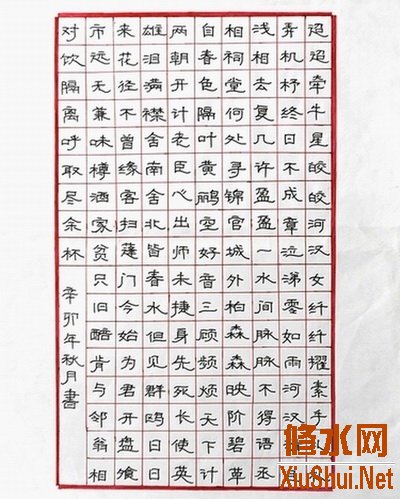 迢迢牵牛星皎皎河汉女纤纤擢素手
弄机杼终日不成章泣涕零如雨河汉
浅相去复几许盈盈一水间脉脉不得语丞
相祠堂何处寻锦官城外柏森森映阶碧草
自春色隔叶黄鹂空好音三顾频烦天下计
两朝开计老臣心出师未捷身先死长使英
雄泪满襟舍南舍北皆春水但见群鸥日日
来花径不曾缘客扫蓬门今始为君开盘飧
市远无兼味樽酒家贫只旧醅肯与邻翁相
对饮隔离呼取尽余杯
辛卯年秋月书
修水网
XiuShui.Net